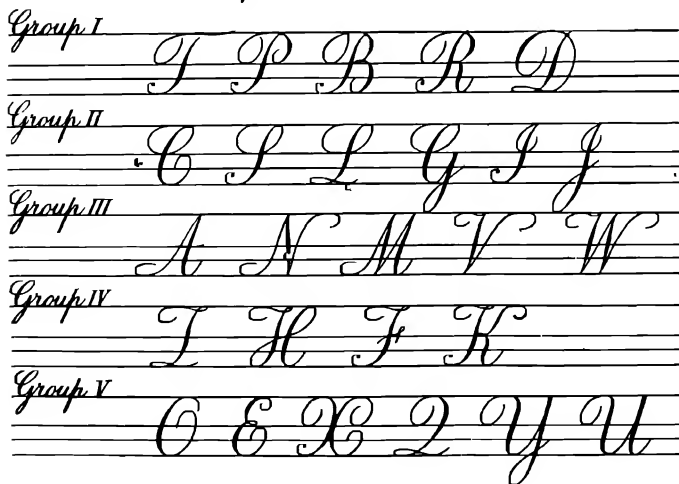 Group I
T P B R D
Group II
C S L G I J
Group III
A N M V W
Group IV
T H F K
Group V
O E X Q Y U